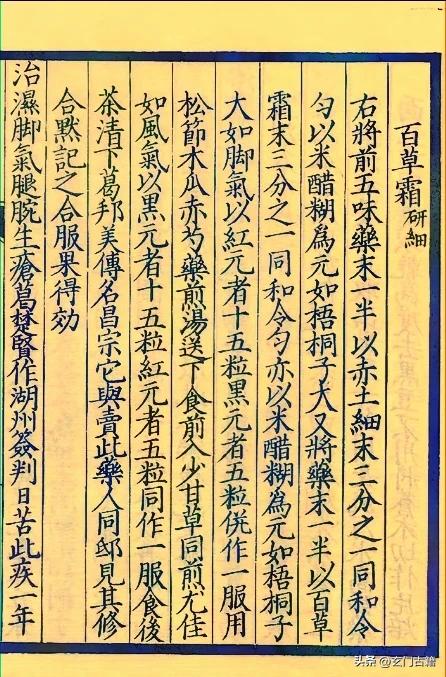 百草霜研細
右將前五味藥末一半以赤土細末三分之一同和令
勻以米醋糊為元如梧桐子大又將藥末一半以百草
霜末三分之一同和令勻亦以米醋糊為元如梧桐子
大如脚氣以紅元者十五粒黑元者五粒併作一服用
松節木瓜赤芍藥煎湯送下食前入少甘草同煎尤佳
如風氣以黑元者十五粒紅元者五粒同作一服食後
茶清下葛邦美傳名昌宗它與賣此藥人同邸見其修
合黙記之合服果得効
治濕脚氣腿腕生瘡葛楚賢作湖州簽判日苦此疾一年
头条@玄门古籍